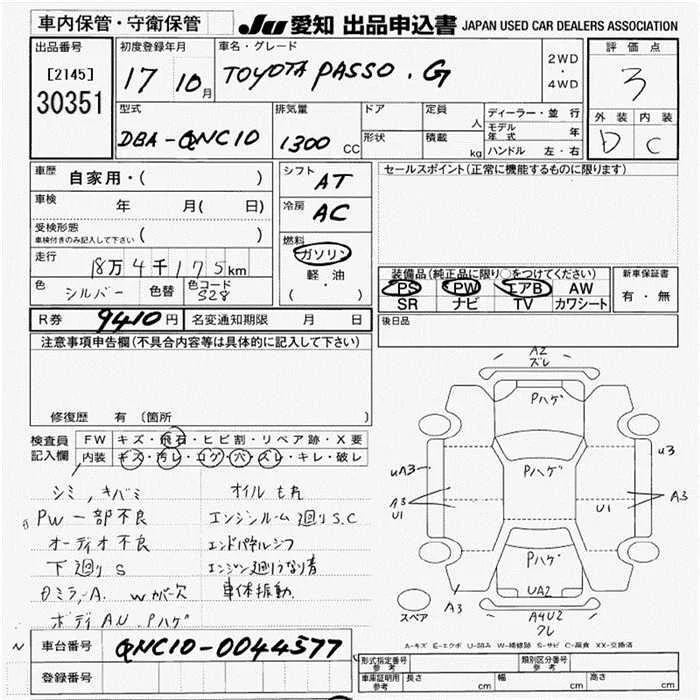 車内保管・守衛保管
JU 愛知 出品申込書 JAPAN USED CAR DEALERS ASSOCIATION
出品番号
[2145]
30351
初度登録年月
17 10月
車名・グレード
TOYOTA PASSO . G
2WD
・
4WD
評価点
3
外装 内装
D C
型式
DBA-QNC10
排気量
1300 CC
ドア
形状
定員 人
積載 kg
ディーラー・並行
モデル年式 年
ハンドル 左・右
車歴
自家用・( )
車検 年 月( 日)
受検形態
車検付きのみ記入して下さい ( )
走行
18万4千175km
色 シルバー 色替 色コード S28
シフト AT
冷房 AC
燃料
ガソリン
軽油
( ・ )
セールスポイント(正常に機能するものに限ります)
装備品(純正品に限り○をつけてください)
PS PW エアB AW
SR ナビ TV カワシート
新車保証書
有・無
R券 9410円 名変通知期限 月 日
後日品
注意事項申告欄(不具合内容等は具体的に記入して下さい)
修復歴 有 (箇所 )
検査員
記入欄
FW キズ・飛石・ヒビ割・リペア跡・X要
内装 キズ・汚レ・コゲ・穴・スレ・キレ・破レ
シミ,キバミ
PW一部不良
オーディオ不良
下廻りS
Dミラー.A. Wカバー欠
ボディAU.Pハゲ
オイルもれ
エンジンルーム廻りS.C
エンドパネルシワ
エンジン廻りうなり音
車体振動.
A2
ズレ
Pハゲ
Pハゲ
Pハゲ
UA2
A4U2
ワレ
uA3
A3
U1
u3
U1
A3
A3
スペア
A-キズ E-エクボ U-凹み W-補修跡 S-サビ C-腐食 XX-交換済
車台番号 QNC10-0044577
登録番号
形式指定番号 参考
類別区分番号 参考
車庫証明用 参考 長さ cm 幅 cm 高さ cm